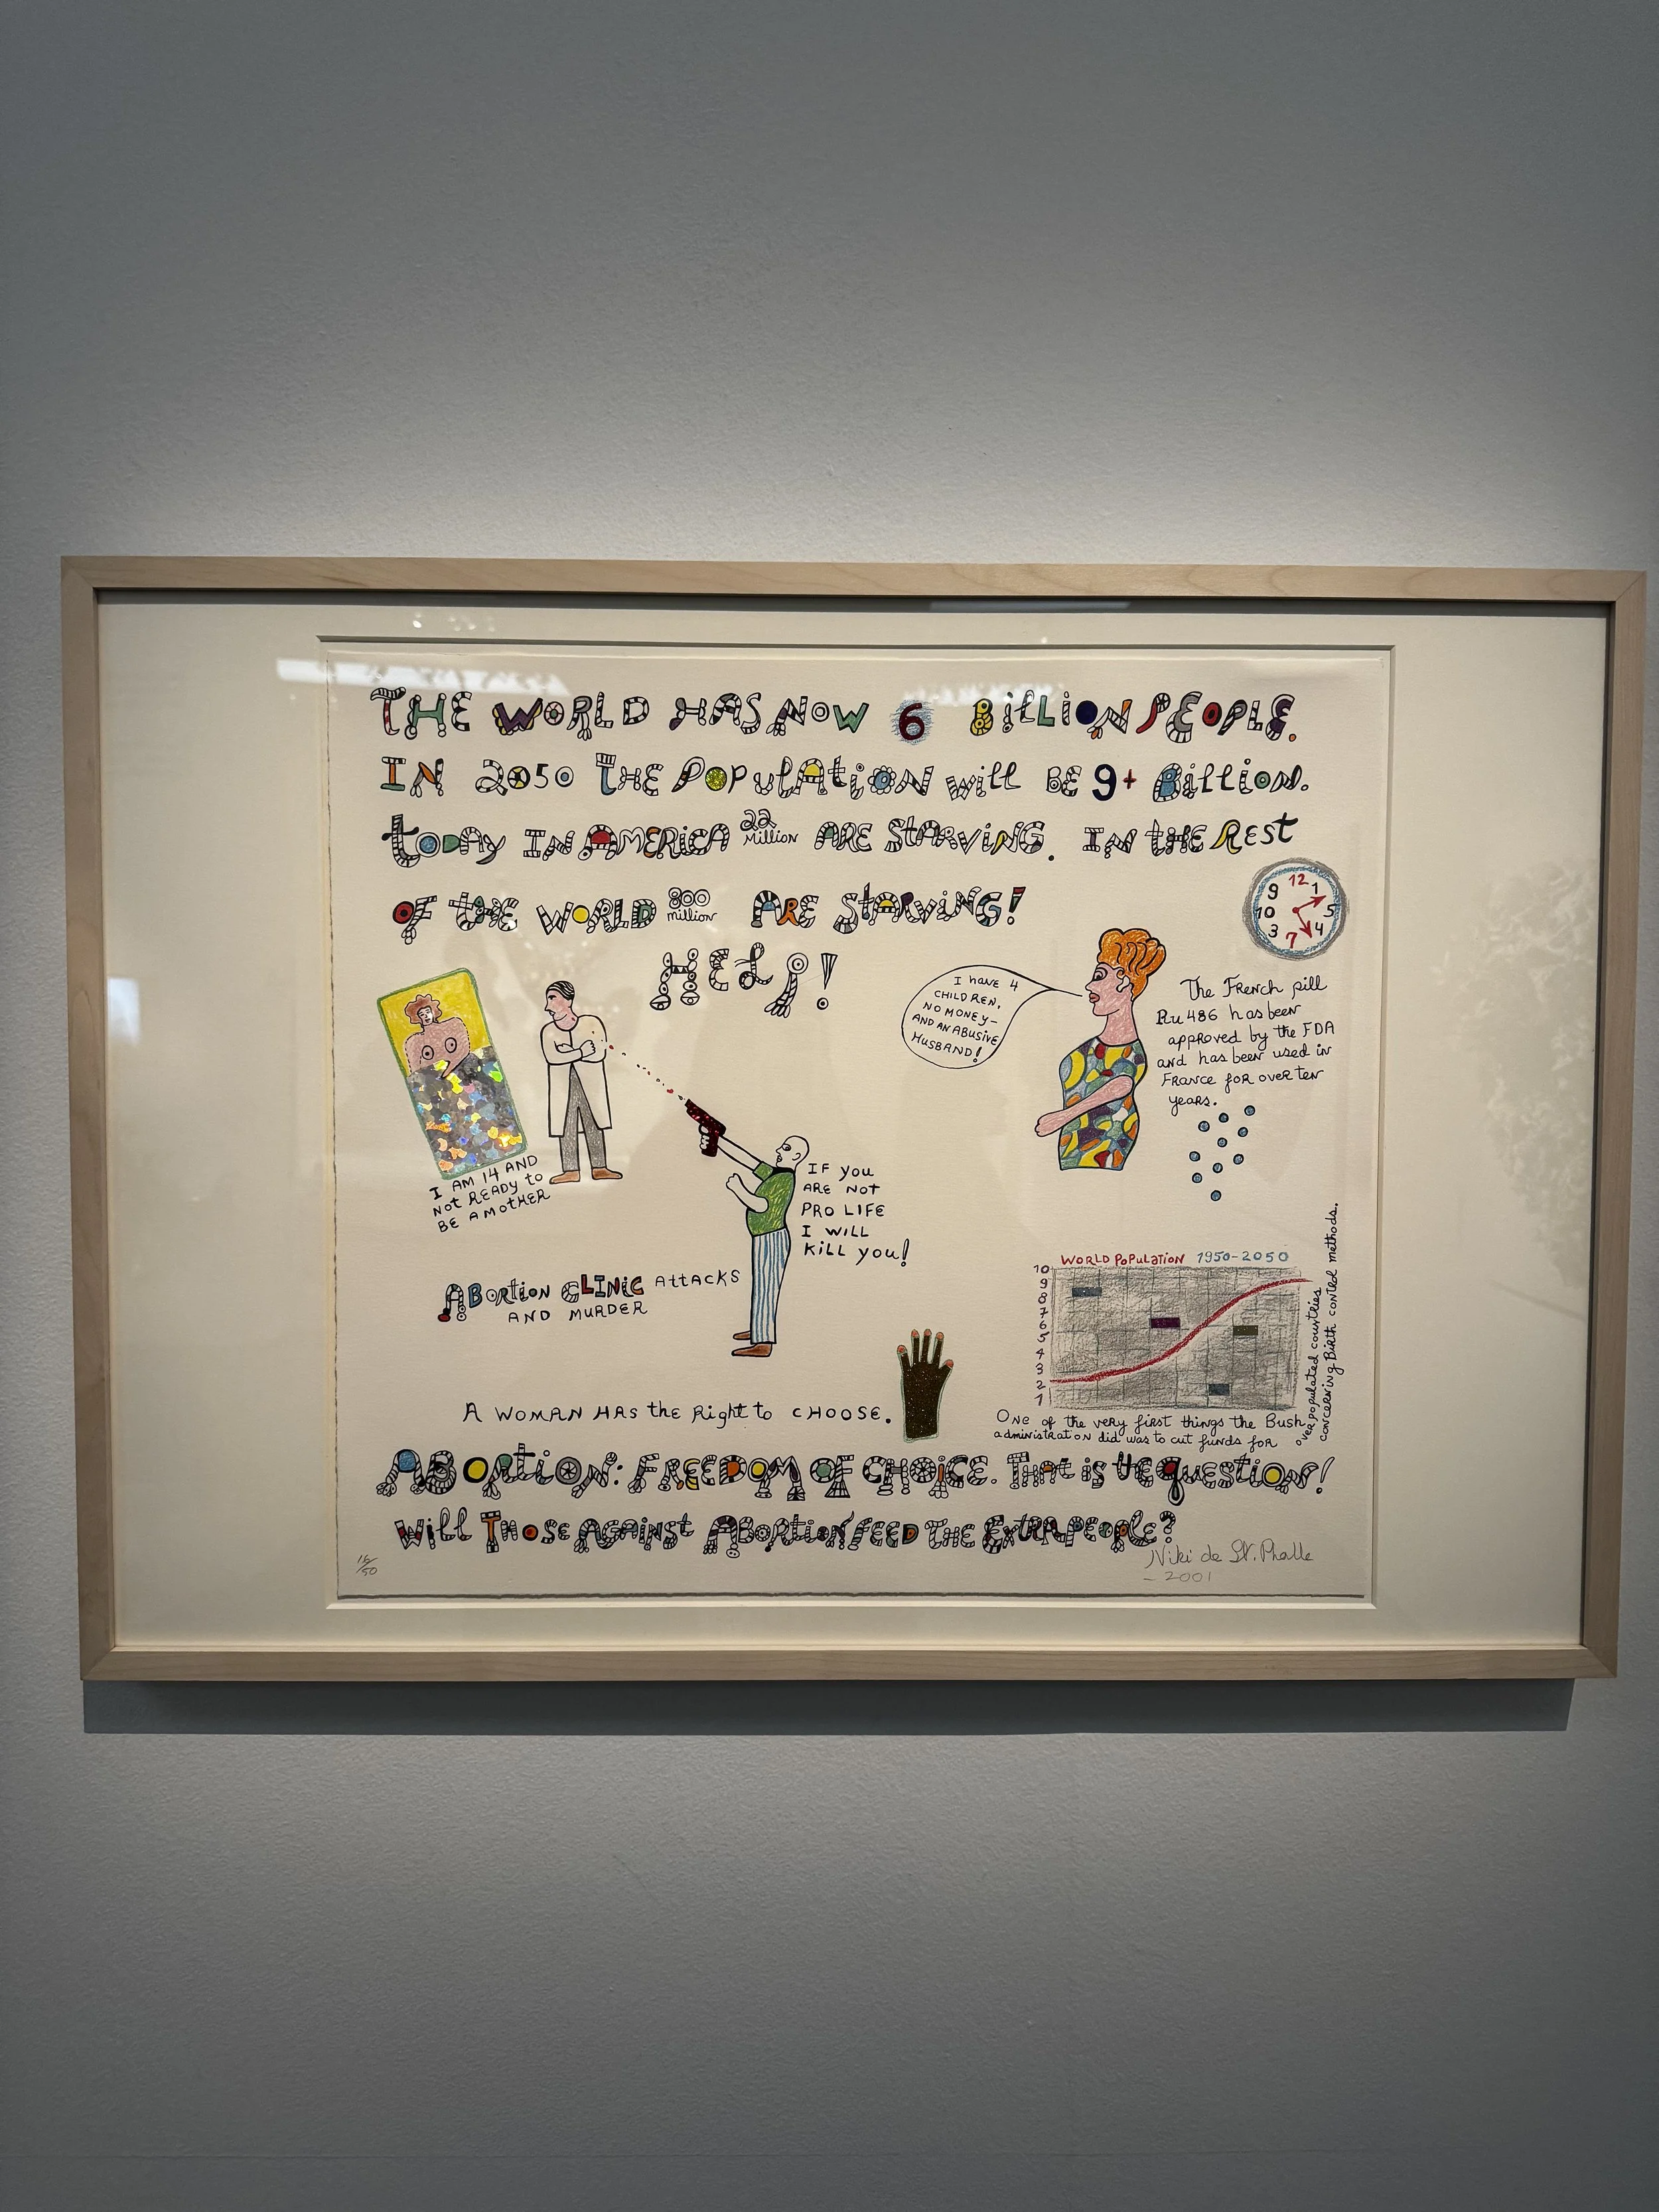 THE WORLD HAS NOW 6 BILLION PEOPLE.
IN 2050 THE POPULATION will BE 9+ Billion.
today IN AMERICA 22 Million ARE STARVING. IN THE REST
OF THE WORLD 800 million ARE STARVING!
HELP!
12
9 1
10 5
3 4
7
I have 4
CHILDREN,
NO MONEY-
AND AN ABUSIVE
HUSBAND!
The French pill
Ru 486 has been
approved by the FDA
and has been used in
France for over ten
years.
I AM 14 AND
Not READY to
BE A MOTHER
IF you
ARE NOT
PRO LIFE
I WILL
KILL you!
ABORTION CLINIC ATTACKS
AND MURDER
WORLD POPULATION 1950-2050
10
9
8
7
6
5
4
3
2
1
One of the very first things the Bush
administration did was to cut funds for
overpopulated countries
concerning Birth control methods.
A WOMAN HAS the Right to CHOOSE.
ABORTION: FREEDOM OF CHOICE. THAT is tHE QUESTION!
Will THOSE AGAINST ABORTION FEED THE EXTRA PEOPLE?
15/50
Niki de St. Phalle
- 2001